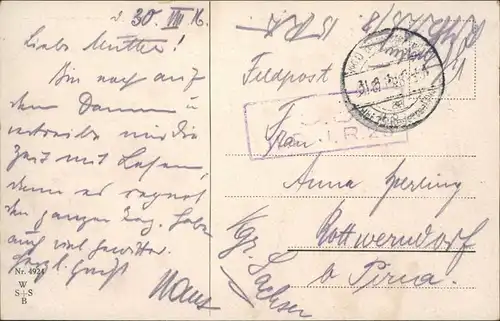 d. 30. VIII 16.
Liebe Mutter!
Bin noch auf
dem Damm u
vertreibe mir die
Zeit mit Lesen,
denn es regnet
den ganzen Tag. Habe
auch viel
Herzl. Gruß
Hans
Nr. 4924
W
S+S
B
Feldpost
Frau
Anna
Rottwerndorf
b Pirna.
Kgr. Sachsen